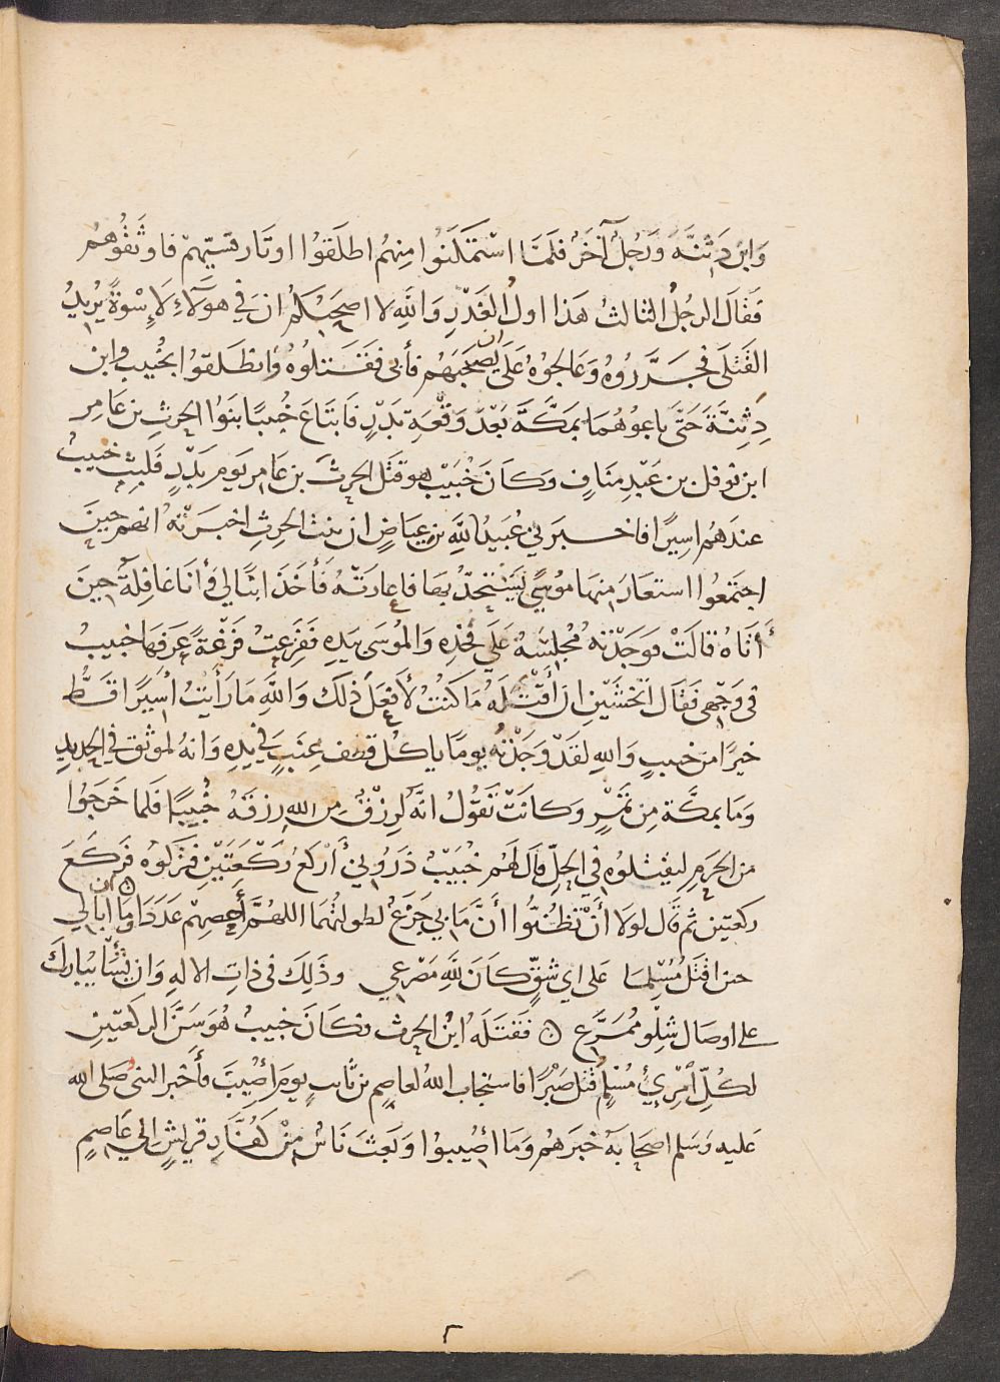 وَابن دَثِنَّةَ وَرَجُلٌ آخَرُ فلمَّا اسْتَمْكَنُوا مِنهُم اطلَقوُا اوتَار قسيّهمْ فاوثَقُوهُم
فَقَالَ الرجُلُ الثالثُ هَذا اولُ الغَدْرِ وَاللهِ لا اصحَبُكُم ان لي في هَوُلآءِ لَإِسْوةً يُرِيدُ
القَتْلَى فجَرَّرُوهُ وَعَالجوُهُ عَلَى ان يَصْحَبَهُم فأبى فقَتَلُوُهُ وَانطَلَقوُا بخُبَيبٍ وابن
دِثِنَّةَ حَتَّى باعوُهُمَا بمَكَّةَ بَعْدَ وَقْعَةِ بَدْرٍ فَابتَاعَ خُبيبًا بَنوُا الحرِثِ بن عَامِر
ابن نوفل بن عَبْدِ مَنَافٍ وَكَانَ خُبَيْبٌ هو قتَل الحرثَ بن عَامِر يَوم بَدْرٍ فَلبِثَ خبيبٌ
عندَهُم اسِيرًا فاخبرَني عُبَيدُاللهِ بن عِيَاضٍ ان بنتَ الحرِثِ اخبَرَتْهُ انهم حِينَ
اجتَمعُوا استعَارَ مِنهَا مُوسًى يَسْتَحِدُّ بهَا فاعارَتْهُ فَأَخَذَ ابنًا لي وَأنَا غافِلَةٌ حِينَ
أتَاهُ قالَتْ فوَجَدْتهُ مُجْلِسَهُ عَلَى فَخِذِهِ وَالمُوسَى بيَدِهِ فَفَزِعتُ فَزْعَةً عَرَفَهَا خُبيبٌ
في وَجْهِى فَقَال اتخشَيْنَ ان أقتُلَهُ مَا كنتُ لأفعَلَ ذلكَ وَاللهِ مَا رَأيتُ أسِيرًا قَطُّ
خيرًا من خبيبٍ وَاللهِ لقَدْ وَجَدْتهُ يومًا ياكل من قطف عِنَبٍ في يَدِهِ وَانهُ لموثق في الحدِيدِ
وَمَا بمكَّة مِن ثَمَرٍ وَكانَتْ تَقوُلُ انَّهُ لَرِزْقٌ من الله رزقَهُ خُبيبًا فلما خَرَجُوا
من الحرَمِ ليقتلُوُه في الحِلِّ قال لَهُم خُبَيْبٌ ذَرُوني أرْكَعْ رَكعَتَيْنِ فَتَركوُه فَركَعَ
ركعتين ثم قَال لولا أنْ تَظُنُّوا أنَّ مَا بي جَزَعٌ لطولتُهُمَا اللهُمَّ أحصِهِمْ عَدَدًا وَمَا ان ابالي
حين اقتَلُ مُسْلِمَا عَلى اي شقٍّ كانَ لِلهِ مَصْرعي وذَلِكَ في ذاتِ الالهِ وَان يَشَأ يُبَاركَ
على اوصَال شِلْوٍ مُمَزَّعِ فَقَتَلَهُ ابنُ الحرِث فكَانَ خبيبٌ هُوَ سَنَّ الركعَتينِ
لكلِّ امْرِئٍ مُسْلِمٍ قُتِلَ صَبْرًا فاستجاب اللهُ لعاصِم بن ثَابتٍ يومَ أُصِيْبَ فأخْبَر النبيُّ صَلى الله
عَليه وَسَلم اصحَابَهُ خبَرَهُم وَمَا أُصِيبوُا وَبَعَثَ نَاسٌ مِنْ كُفَّارِ قُريْشٍ الى عَاصِمٍ
٢